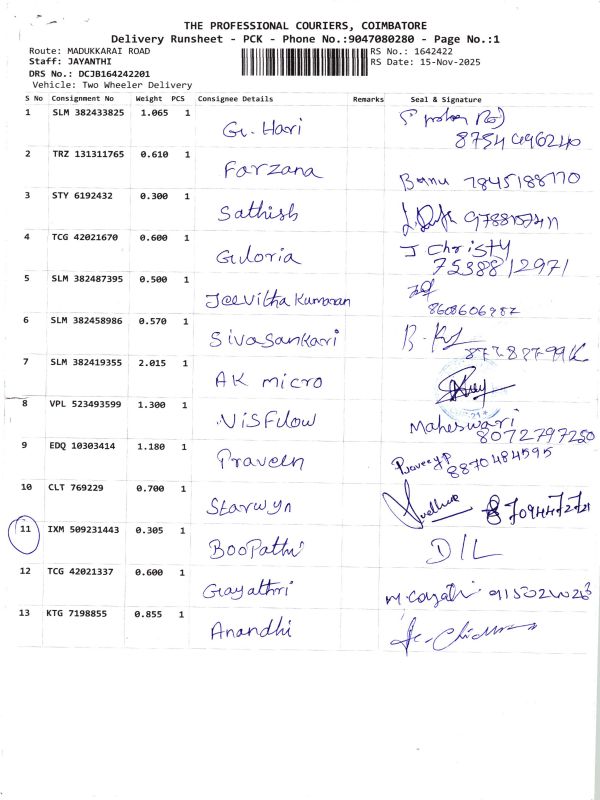 THE PROFESSIONAL COURIERS, COIMBATORE
Delivery Runsheet - PCK - Phone No.:9047080280 - Page No.:1
Route: MADUKKARAI ROAD
RS No.: 1642422
Staff: JAYANTHI
RS Date: 15-Nov-2025
DRS No.: DCJB164242201
Vehicle: Two Wheeler Delivery
S No Consignment No Weight PCS Consignee Details Remarks Seal & Signature
1 SLM 382433825 1.065 1 G. Hari 8754496240
2 TRZ 131311765 0.610 1 Farzana Banu 7845188770
3 STY 6192432 0.300 1 Sathish
4 TCG 42021670 0.600 1 Guloria J Christy
7538812971
5 SLM 382487395 0.500 1 Jeevitha Kumaran 8608606982
6 SLM 382458986 0.570 1 Sivasankari
7 SLM 382419355 2.015 1 AK micro
8 VPL 523493599 1.300 1 ViSFlow Maheswari
8072797250
9 EDQ 10303414 1.180 1 Praveen Praveen P
8870484595
10 CLT 769229 0.700 1 Starwyn 8709447272
11 IXM 509231443 0.305 1 BooPathi D/L
12 TCG 42021337 0.600 1 Gayathri M. Gayathri
13 KTG 7198855 0.855 1 Anandhi